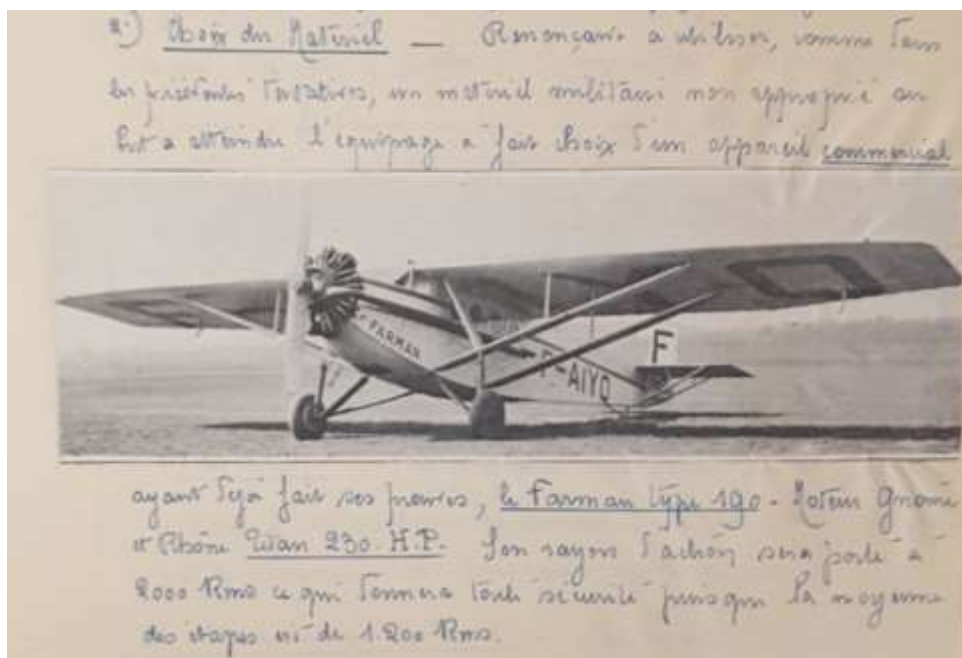 2°) Choix du Matériel — Renonçant à utiliser, comme dans
les précédentes tentatives, un matériel militaire non approprié au
but à atteindre l'équipage a fait choix d'un appareil commercial
FARMAN
F-AIYQ
F
ayant déjà fait ses preuves, le Farman type 190 - Moteur Gnome
et Rhône Titan 230 H.P. Son rayon d'action sera porté à
2000 Kms ce qui donnera toute sécurité puisque la moyenne
des étapes est de 1.200 Kms.